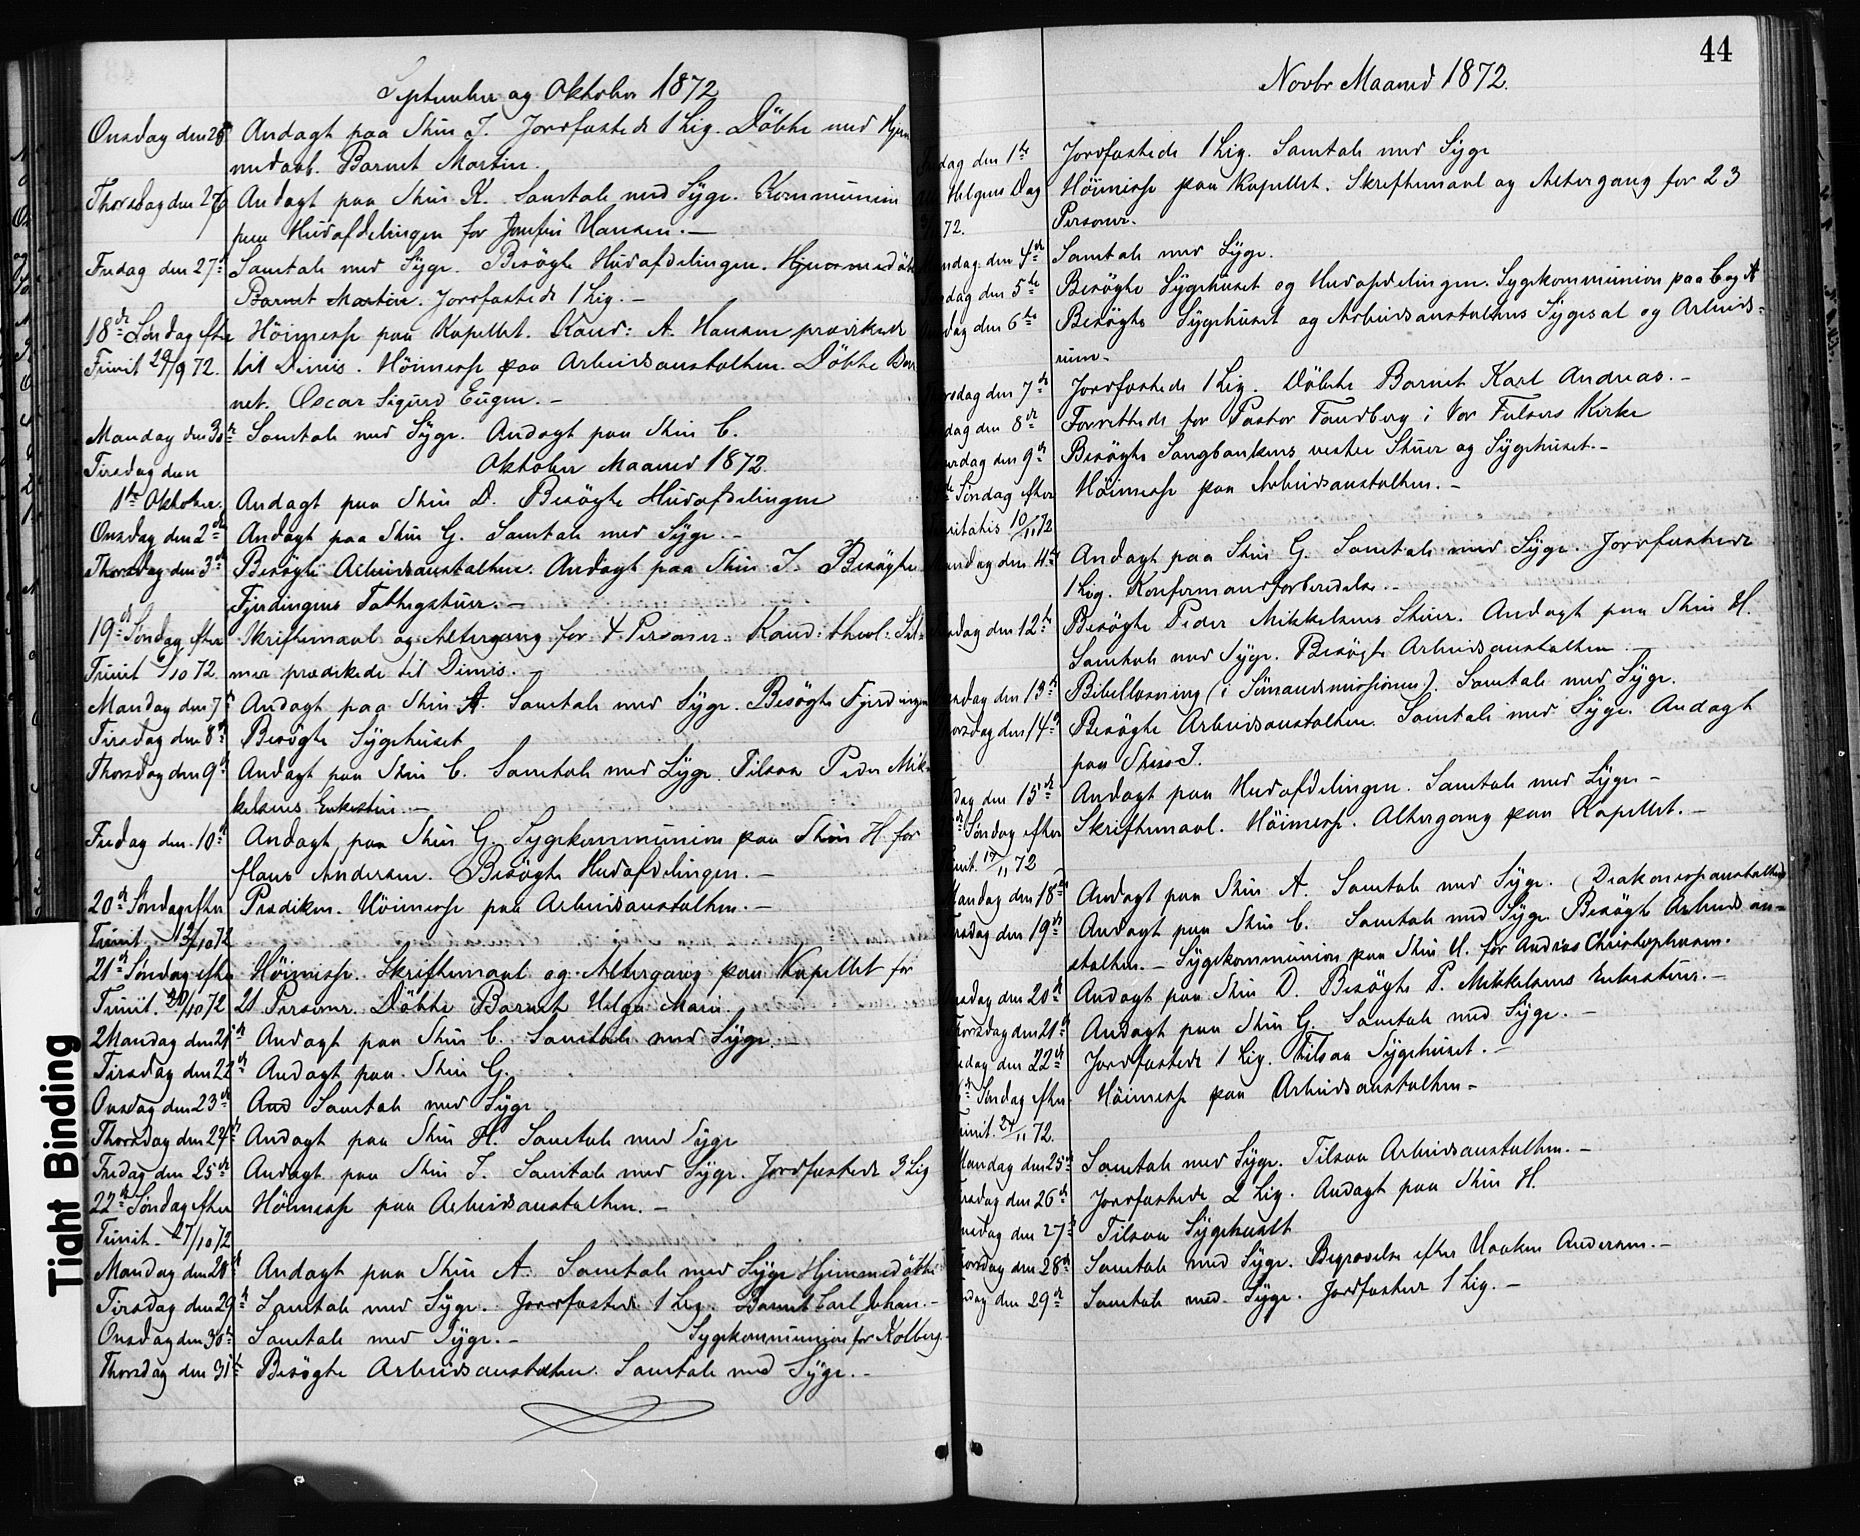 September og Oktober 1872
Onsdag den 25 Andagt paa Stue I. Jordfæstede 1 Lig. Döbte med Hjem
medaab. Barnet Martin.
Thorsdag den 26 Andagt paa Stue K. Samtale med Syge. Kommunion
paa Hudafdelingen for Josefine Hansen. —
Fredag den 27de Samtale med Syge. Besögte Hudafdelingen. Hjemmedöbt
Barnet Martin. Jordfæstede 1 Lig. —
18de Søndag efter Höimesse paa Kapellet. Kand: A. Hansen prædikede
Trinit 29/9 72. til Dimis. Höimesse paa Arbeidsanstalten. Döbte Bar
net. Oscar Sigurd Eugen. —
Mandag den 30te Samtale med Syge. Andagt paa Stue C.
Oktober Maaned 1872.
Tirsdag den
1ste Oktober. Andagt paa Stue D. Besögte Hudafdelingen
Onsdag den 2den Andagt paa Stue G. Samtale med Syge. —
Thorsdag den 3de Besögte Arbeidsanstalten. Andagt paa Stue I. Besögte
Fjerdingens Fattigstuer. —
19de Søndag efter Skriftemaal og Altergang for 4 Personer. Kand: theol:
Trinit 6/10 72. mer prædikede til Dimis. —
Mandag den 7de Andagt paa Stue A. Samtale med Syge. Besögte Fjerdingen
Tirsdag den 8de Besögte Sygehuset
Thorsdag den 9de Andagt paa Stue C. Samtale med Syge. Tilsaa Peder Mik-
kelsens Enkestue. —
Fredag den 10de Andagt paa Stue G. Sygekommunion paa Stue H. for
Hans Andersen. Besögte Hudafdelingen. —
20de Søndag efter Prædiken. Höimesse paa Arbeidsanstalten. —
Trinit 13/10 72
21de Søndag efter Höimesse. Skriftemaal og Altergang paa Kapellet for
Trinit. 20/10 72 21 Personer. Döbte Barnet Helga Marie.
Mandag den 21de Andagt paa Stue C. Samtale med Syge.
Tirsdag den 22de Andagt paa Stue G.
Onsdag den 23de And Samtale med Syge
Thorsdag den 24de Andagt paa Stue H. Samtale med Syge
Fredag den 25de Andagt paa Stue I. Samtale med Syge. Jordfæstede 3 Lig
22de Søndag efter Höimesse paa Arbeidsanstalten. —
Trinit. 27/10 72
Mandag den 28de Andagt paa Stue A. Samtale med Syge Hjemmedöbte
Tirsdag den 29de Samtale med Syge. Jordfæstede 1 Lig. Barnet Carl Johan. —
Onsdag den 30te Samtale med Syge. — Sygekommunion for Kolberg.
Thorsdag den 31te Besögte Arbeidsanstalten. Samtale med Syge. —
44
Novbr Maaned 1872.
dag den 1ste Jordfæstede 1 Lig. Samtale med Syge
Helgens Dag Höimesse paa Kapellet. Skriftemaal og Altergang for 23
72. Personer.
ndag den 4de Samtale med Syge.
dag den 5te Besögte Sygehuset og Hudafdelingen. Sygekommunion paa C og A
dag den 6te Besögte Sygehuset og Arbeidsanstaltens Sygesal og Arbeids-
rum.
rsdag den 7de Jordfæstede 1 Lig. Döbte Barnet Karl Andreas. —
dag den 8de Forrettede for Pastor Tandberg i Vor Frelsers Kirke
rdag den 9de Besögte Sangbankens vestre Stuer og Sygehuset. —
Søndag efter Höimesse paa Arbeidsanstalten. —
nitatis 10/11 72
ndag den Andagt paa Stue G. Samtale med Syge. Jordfæstede
1 Lig. Konfirmandforberedelse. —
dag den 12te Besögte Peder Mikkelsens Stuer. Andagt paa Stue H.
Samtale med Syge. Besögte Arbeidsanstalten.
sdag den 13de Bibellæsning (i Sömandsmissionen). Samtale med Syge.
orsdag den 14de Besögte Arbeidsanstalten. Samtale med Syge. Andagt
paa Stue I.
dag den 15de Andagt paa Hudafdelingen. Samtale med Syge —
Søndag efter Skriftemaal. Höimesse. Altergang paa Kapellet. —
init. 17/11 72
Mandag den 18de Andagt paa Stue A. Samtale med Syge. (Diakonisseanstalten
rsdag den 19de Andagt paa Stue C. Samtale med Syge. Besögte Arbeidsan-
stalten. — Sygekommunion paa Stue H. for Andreas Christophersen.
nsdag den 20de Andagt paa Stue D. Besögte P. Mikkelsens Enkestuer. —
Thorsdag den 21de Andagt paa Stue G. Samtale med Syge. —
edag den 22de Jordfæstede 1 Lig. Tilsaa Sygehuset. —
Søndag efter Höimesse paa Arbeidsanstalten —
Trinit. 24/11 72.
Mandag den 25de Samtale med Syge. Tilsaa Arbeidsanstalten. —
irsdag den 26de Jordfæstede 2 Lig. Andagt paa Stue H.
nsdag den 27de Tilsaa Sygehuset
Thorsdag den 28de Samtale med Syge. Begravelse efter Haaken Andersen. —
edag den 29de Samtale med Syge. Jordfæstede 1 Lig. —
Tight Binding